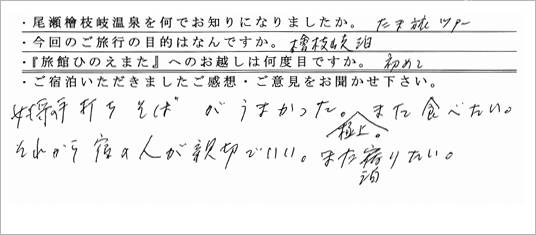 ・尾瀬檜枝岐温泉を何でお知りになりましたか。たま旅ツアー
・今回のご旅行の目的はなんですか。檜枝岐泊
・『旅館ひのえまた』へのお越しは何度目ですか。初めて
・ご宿泊いただきましたご感想・ご意見をお聞かせ下さい。
女将の手打ちそばがうまかった。また食べたい。
極上。
それから宿の人が親切でいい。また宿りたい。
泊